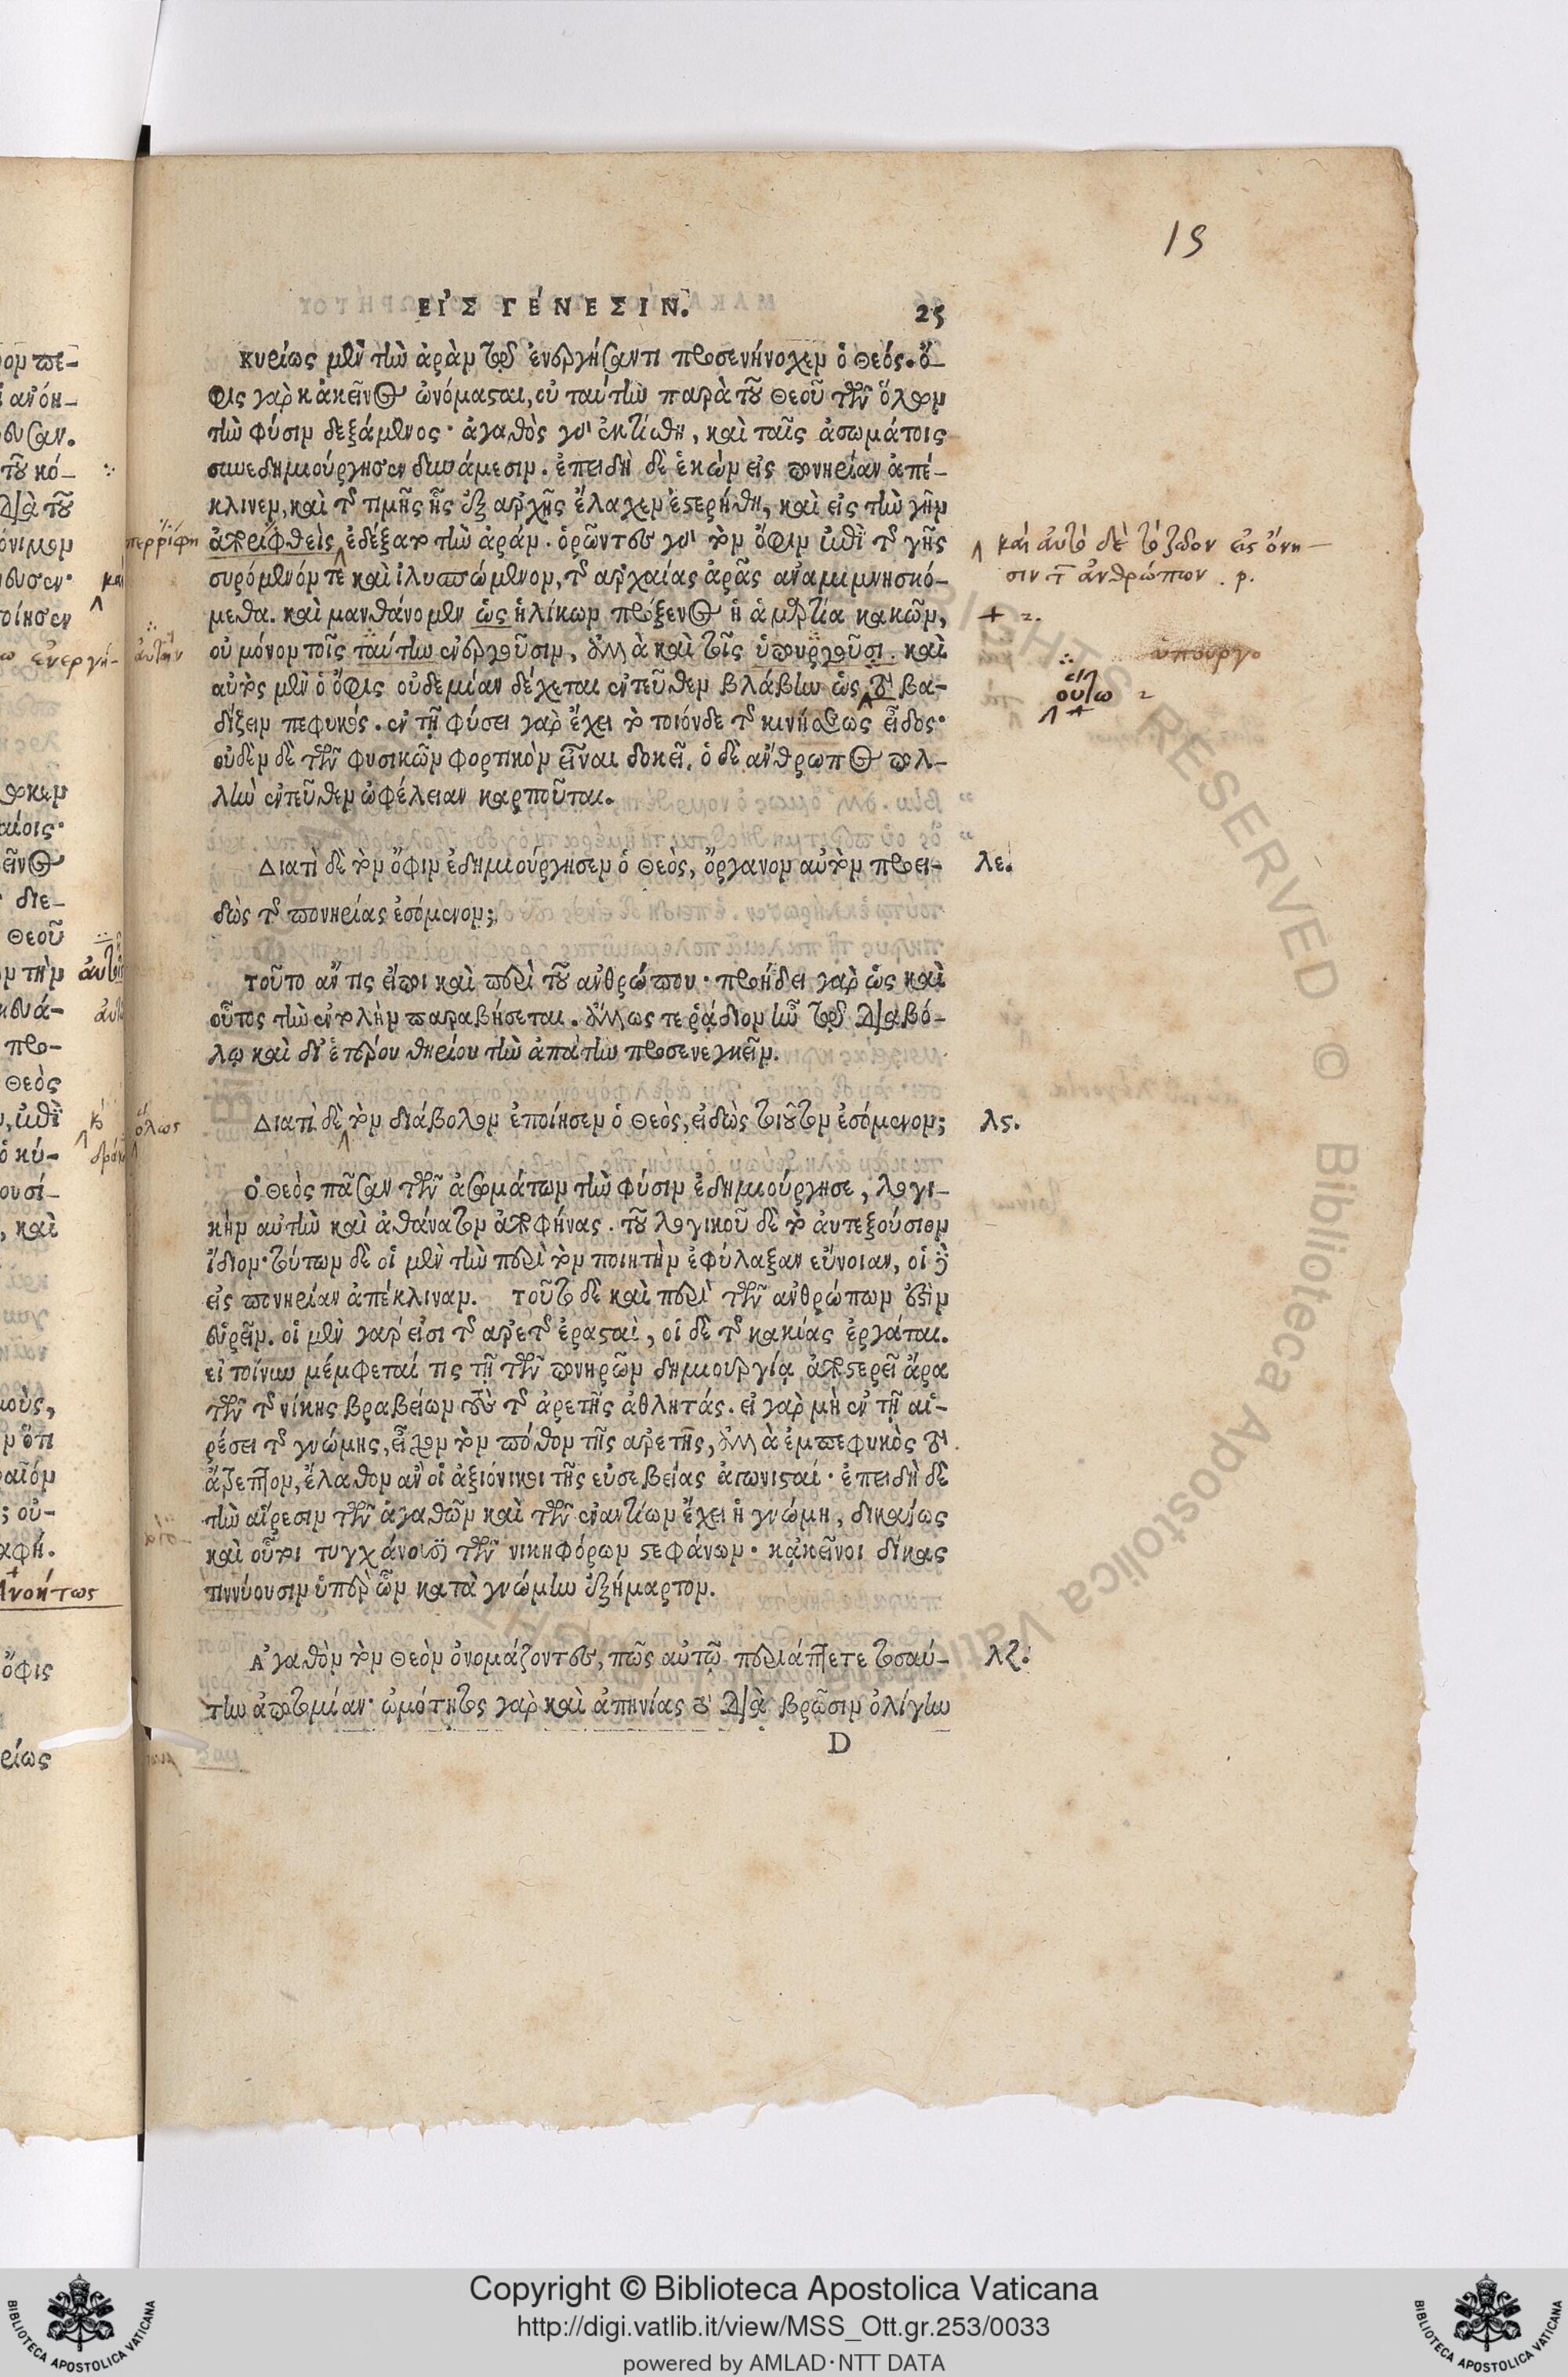 19
ΕΙ᾿Σ ΓΕ´ΝΕΣΙΝ.
25
κυρίως μὲν τὴν ἀρὰν τῷ ἐνεργήσαντι προσενήνοχεν ὁ Θεός. ὄ-
φις γὰρ κἀκεῖνος ὠνόμασται, οὐ ταύτην παρὰ τοῦ Θεοῦ τῶν ὅλων
τὴν φύσιν δεξάμενος· ἀγαθὸς γὰρ ἐκτίσθη, καὶ ταῖς ἀσωμάτοις
συνεδημιούργησεν δυνάμεσιν. ἐπειδὴ δὲ ἑκὼν εἰς πονηρίαν ἀπέ-
κλινεν, καὶ τῆς τιμῆς ἧς ἐξ ἀρχῆς ἔλαχεν ἐστερήθη, καὶ εἰς τὴν γῆν
ἀπορριφθεὶς ἐδέξατο τὴν ἀράν. ὁρῶντες γὰρ τὸν ὄφιν ἐπὶ τῆς γῆς
συρόμενόν τε καὶ ἰλυσπώμενον, τῆς ἀρχαίας ἀρᾶς ἀναμιμνησκό-
μεθα. καὶ μανθάνομεν ὡς ἡλίκων πρόξενος ἡ ἁμαρτία κακῶν,
οὐ μόνον τοῖς ταύτην ἐνεργοῦσιν, ἀλλὰ καὶ τοῖς ὑπουργοῦσι. καὶ
αὐτὸς μὲν ὁ ὄφις οὐδεμίαν δέχεται ἐντεῦθεν βλάβην ὡς γὰρ βα-
δίζειν πεφυκός. ἐν τῇ φύσει γὰρ ἔχει τὸ τοιόνδε τῆς κινήσεως εἶδος·
οὐδὲν δὲ τῶν φυσικῶν φορτικὸν εἶναι δοκεῖ. ὁ δὲ ἄνθρωπος πολ-
λὴν ἐντεῦθεν ὠφέλειαν καρποῦται.
Διατὶ δὲ τὸν ὄφιν ἐδημιούργησεν ὁ Θεὸς, ὄργανον αὐτὸν προει-
λε.
δὼς τῆς πονηρίας ἐσόμενον;
τοῦτο ἄν τις εἴποι καὶ περὶ τοῦ ἀνθρώπου· προῄδει γὰρ ὡς καὶ
οὗτος τὴν ἐντολὴν παραβήσεται. ἄλλως τε ῥᾴδιον ἦν τῷ Διαβό-
λῳ καὶ δι' ἑτέρου θηρίου τὴν ἀπάτην προσενεγκεῖν.
Διατὶ δὲ τὸν διάβολον ἐποίησεν ὁ Θεὸς, εἰδὼς τοιοῦτον ἐσόμενον;
λς.
ὁ Θεὸς πᾶσαν τῶν ἀσωμάτων τὴν φύσιν ἐδημιούργησε, λογι-
κὴν αὐτὴν καὶ ἀθάνατον ἀποφήνας. τοῦ λογικοῦ δὲ τὸ αὐτεξούσιον
ἴδιον· τούτων δὲ οἱ μὲν τὴν περὶ τὸν ποιητὴν ἐφύλαξαν εὔνοιαν, οἱ δὲ
εἰς πονηρίαν ἀπέκλιναν. τοῦτο δὲ καὶ περὶ τῶν ἀνθρώπων ἐστὶν
εὑρεῖν. οἱ μὲν γάρ εἰσι τῆς ἀρετῆς ἐρασταὶ, οἱ δὲ τῆς κακίας ἐργάται.
εἰ τοίνυν μέμφεταί τις τῇ τῶν πονηρῶν δημιουργίᾳ ἀποστερεῖ ἄρα
τῶν τῆς νίκης βραβείων τοὺς τῆς ἀρετῆς ἀθλητάς. εἰ γὰρ μὴ ἐν τῇ αἱ-
ρέσει τῆς γνώμης, εἶχον τὸν πόθον τῆς ἀρετῆς, ἀλλὰ ἐμπεφυκὸς τὸ
ἄτρεπτον, ἔλαθον ἂν οἱ ἀξιόνικοι τῆς εὐσεβείας ἀγωνισταί· ἐπειδὴ δὲ
τὴν αἵρεσιν τῶν ἀγαθῶν καὶ τῶν ἐναντίων ἔχει ἡ γνώμη, δικαίως
καὶ οὗτοι τυγχάνουσι τῶν νικηφόρων στεφάνων· κἀκεῖνοι δίκας
τιννύουσιν ὑπὲρ ὧν κατὰ γνώμην ἐξήμαρτον.
Ἀγαθὸν τὸν Θεὸν ὀνομάζοντες, πῶς αὐτῷ περιάπτετε τοσαύ-
λζ.
την ἀποτομίαν· ὠμότητος γὰρ καὶ ἀπηνίας τὸ Διὰ βρῶσιν ὀλίγην
D
καὶ αὐτὸ δὲ τὸ ζῶον εἰς ὄνη-
σιν τ ἀνθρώπων. ρ.
ὑπουργο
οὕτω
αὐτὴν
ὅλως
Copyright © Biblioteca Apostolica Vaticana
http://digi.vatlib.it/view/MSS_Ott.gr.253/0033
powered by AMLAD·NTT DATA